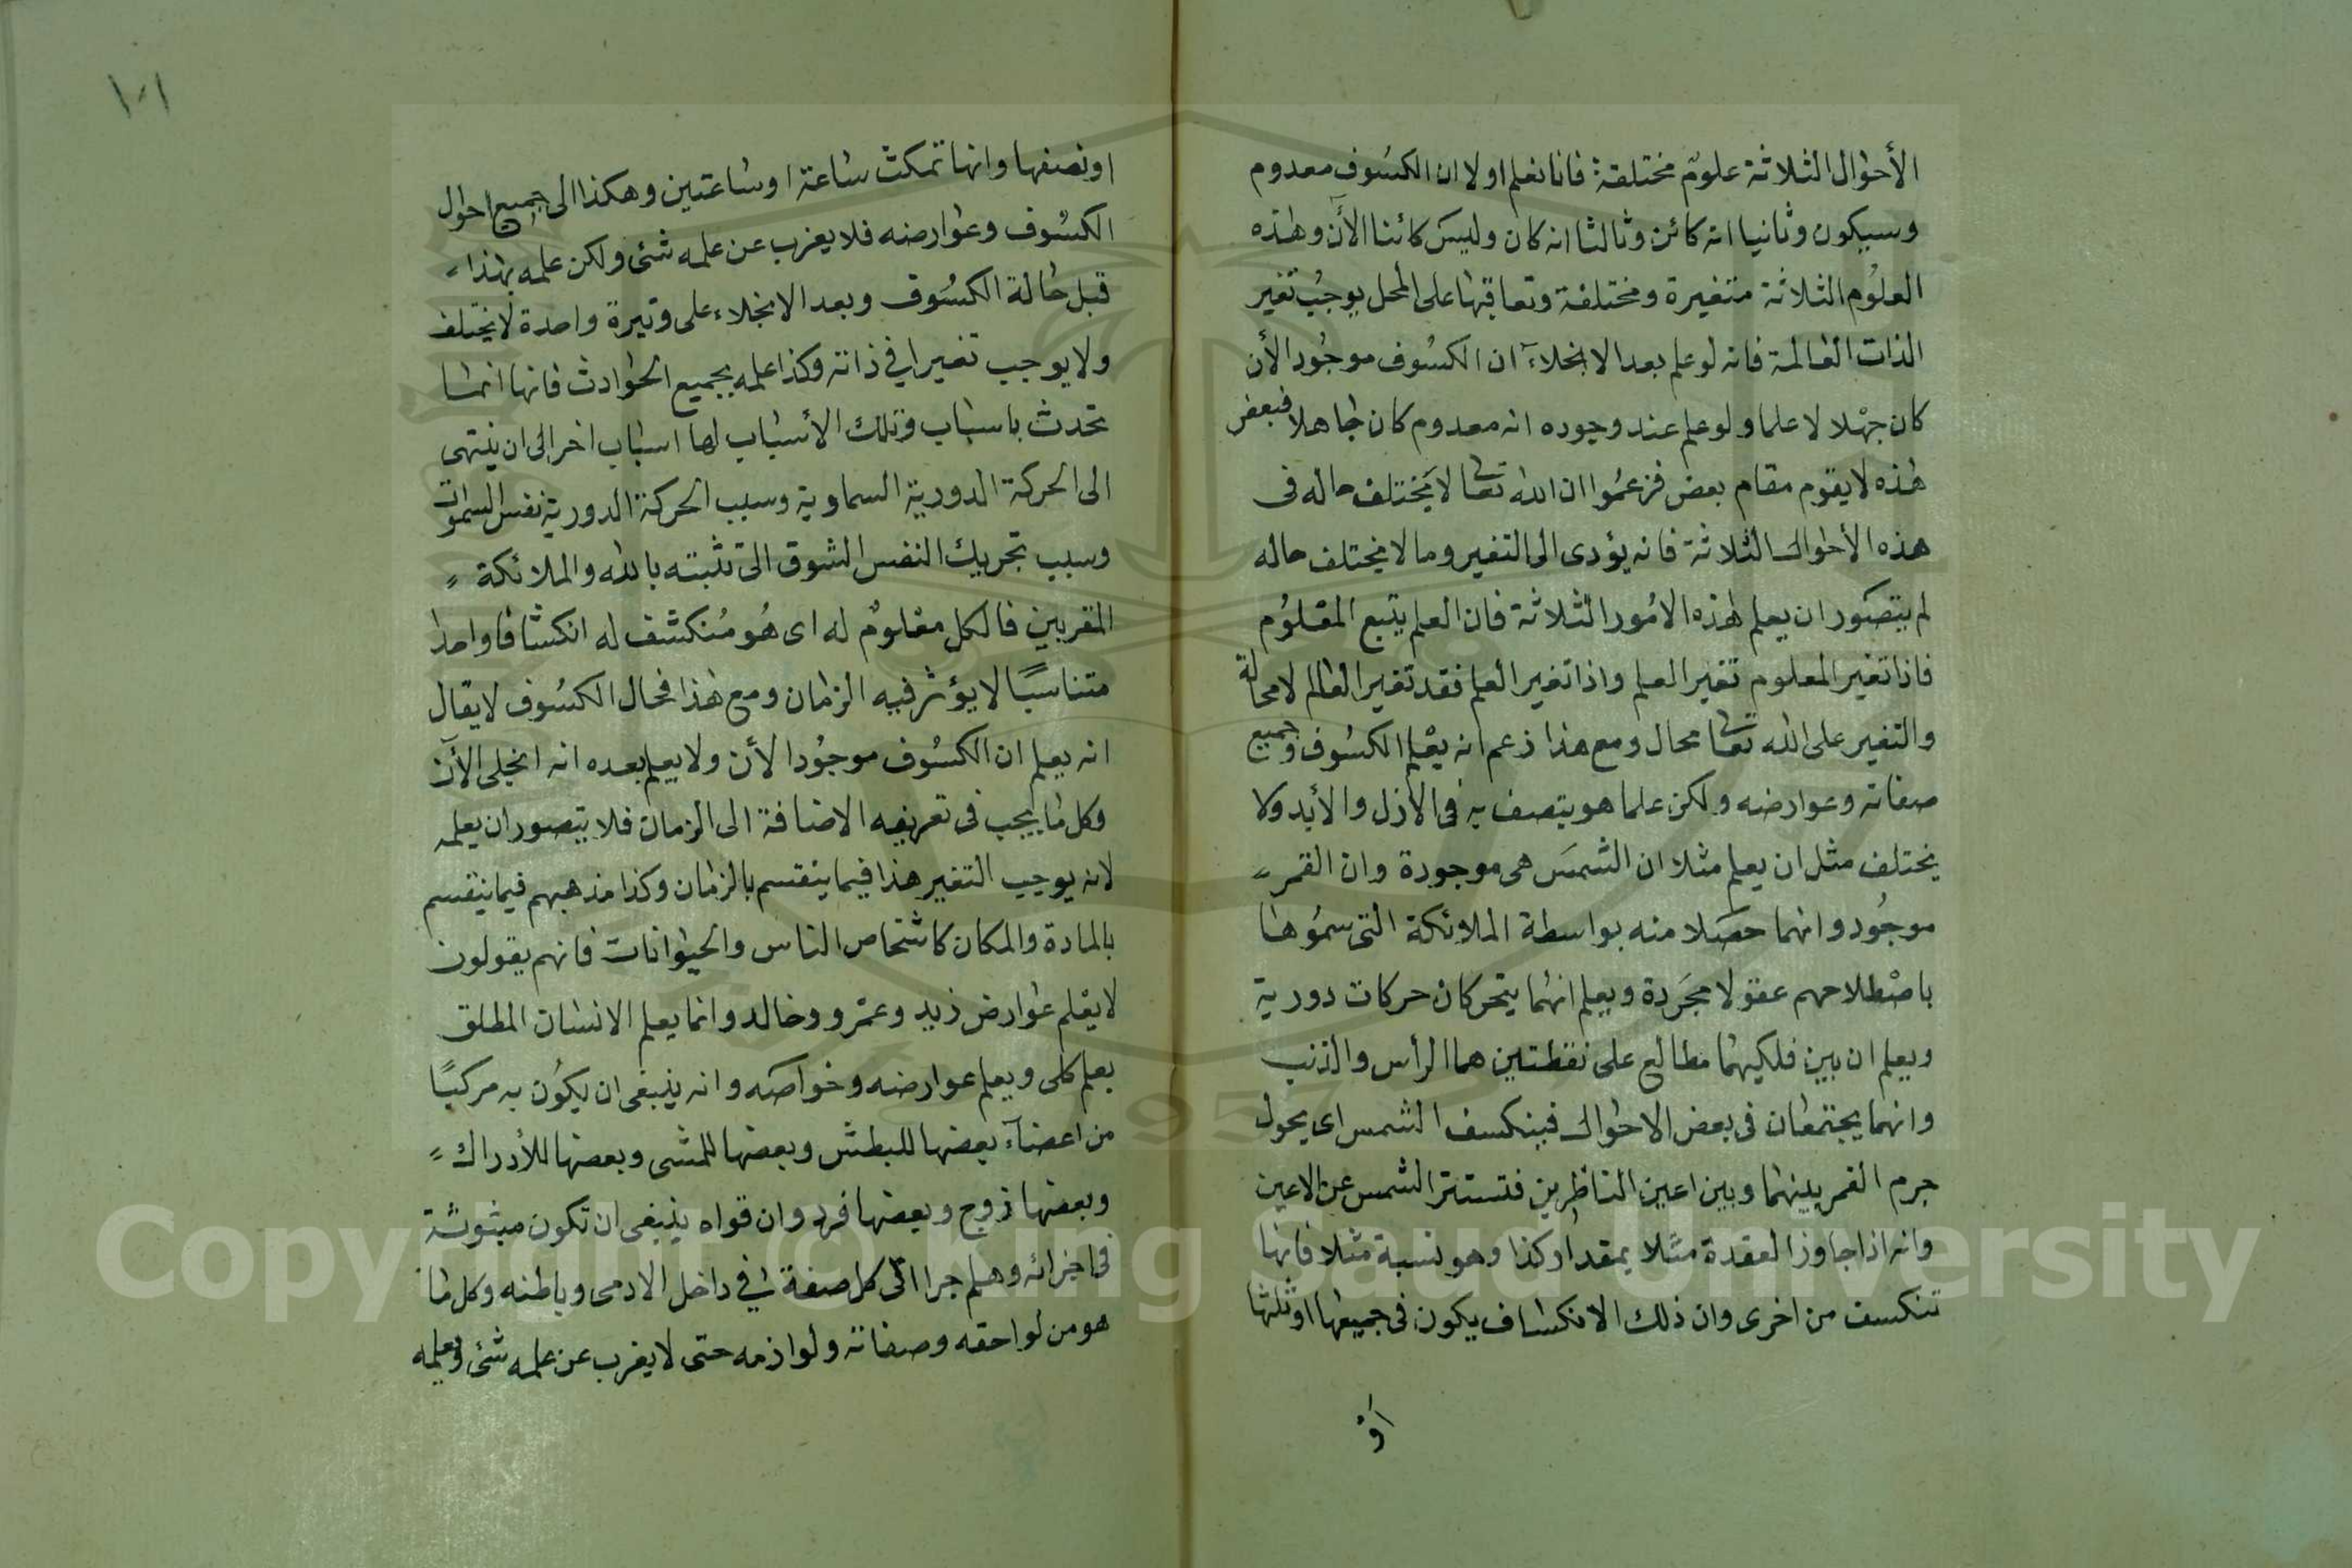 الأحوال الثلاثة علوم مختلفة فانا نعلم اولا ان الكسُوف معدوم
وسيكون وثانيا انه كائن وثالثا انه كان وليسَ كائنا الأن وهذه
العلوُم الثلاثة متغيرة ومختلفة وتعاقبها على المحل يوجبُ تغير
الذات العالمة فانه لو علم بعد الانجلاء ان الكسُوف موجُود الأن
كان جهْلا لا علما ولو علم عند وجوده انه معدوم كان جاهلا فبعض
هذه لا يقوم مقام بعض فزعمُوا ان الله تعالى لا يَختلف حاله فى
هذه الأحوال الثلاثة فانه يؤدى الى التغير وما لا يختلف حاله
لم يتصَور ان يعلم هذه الامُور الثلاثة فان العلم يتبع المعْلوُم
فاذا تغير المعلوم تغير العلم واذا تغير العلم فقد تغير العالم لا محالة
والتغير على الله تعالى محال ومع هذا زعم انه يعْلم الكسُوف وجميع
صفاته وعوارضه ولكن علما هو يتصف به فى الأزل والأبد ولا
يختلف مثل ان يعلم مثلا ان الشمسَ هى موجودة وان القمر
موجُود وانهما حصَلا منه بواسطة الملائكة التى سمُوها
باصْطلاحهم عقولا مجَردة ويعلم انهُما يتحركان حركات دورية
ويعلم ان بين فلكيهُما مطالع على نقطتين هما الرأس والذنب
وانهما يجتمعان فى بعض الاحوال فينكسف الشمس اى يحول
جرم القمر بينهما وبين اعين الناظرين فتستتر الشمس عن الاعين
وانه اذا جاوز العقدة مثلا بمقدار كذا وهو نسبة مثلا فانها
تنكسف من اخرى وان ذلك الانكساف يكون فى جميعها او ثلثها
او
١٠١
او نصفها وانها تمكث ساعة او ساعتين وهكذا الى جميع احوال
الكسُوف وعوارضه فلا يعزب عن علمه شئ ولكن علمه بهذا
قبل حالة الكسُوف وبعد الانجلاء على وتيرة واحدة لا يختلف
ولا يوجب تغيرا فى ذاته وكذا علمه بجميع الحوادث فانها انما
تحدث باسباب وتلك الأسباب لها اسباب اخر الى ان ينتهى
الى الحركة الدورية السماوية وسبب الحركة الدورية نفس السموات
وسبب تحريك النفس الشوق الى تشبته بالله والملائكة
المقربين فالكل معْلومٌ له اى هُو مُنكشف له انكشافا واحدا
متناسبًا لا يؤثر فيه الزمان ومع هذا فحال الكسُوف لا يقال
انه يعلم ان الكسُوف موجُود الأن ولا يعلم بعده انه انجلى الأن
وكل ما يجب فى تعريفه الاضافة الى الزمان فلا يتصور ان يعلمه
لانه يوجب التغير هذا فيما ينقسم بالزمان وكذا مذهبهم فيما ينقسم
بالمادة والمكان كاشخاص الناس والحيوانات فانهم يقولون
لا يعْلم عوارض زيد وعمْرو وخالد وانما يعلم الانسان المطلق
بعلم كلى ويعلم عوارضه وخواصَه وانه ينبغى ان يكوُن به مركبًا
من اعضاء بعضها للبطش وبعضها للمشى وبعضها للأدراك
وبعضها زوج وبعضها فرد وان قواه ينبغى ان تكون مبثوثة
فى اجزائه وهلم جرا الى كل صفة فى داخل الادمى وباطنه وكل ما
هو من لواحقه وصفاته ولوازمه حتى لا يعزب عن علمه شئ ويعلمه
Copyright © King Saud University
1957